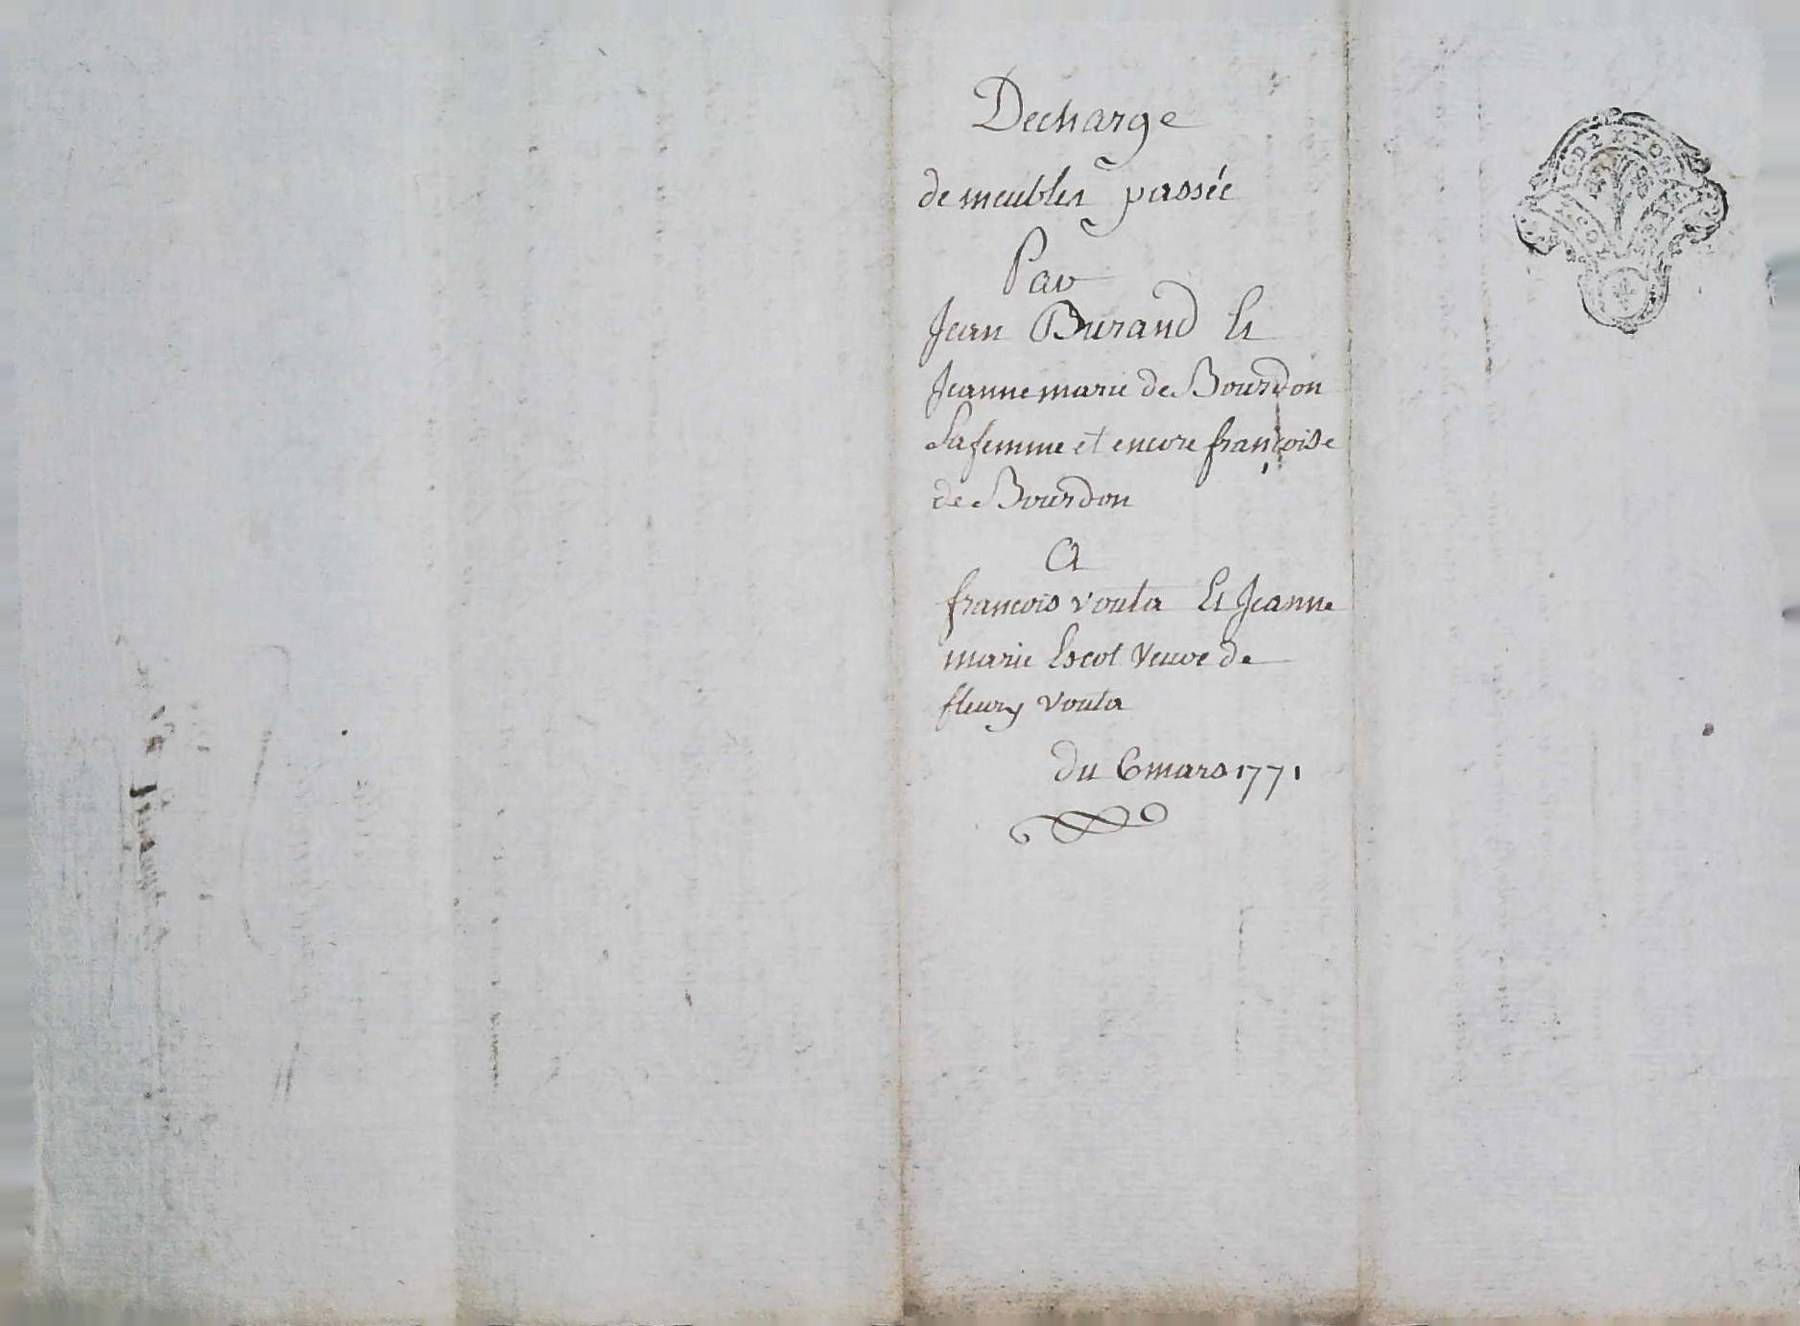 Decharge
de meubles passée
Par
Jean Burand Et
Jeanne marie de Bourdon
Sa femme et encore françoise
de Bourdon
A
francois vouta Et Jeanne
marie Escot Veuve de
fleury vouta
du 6 mars 1771